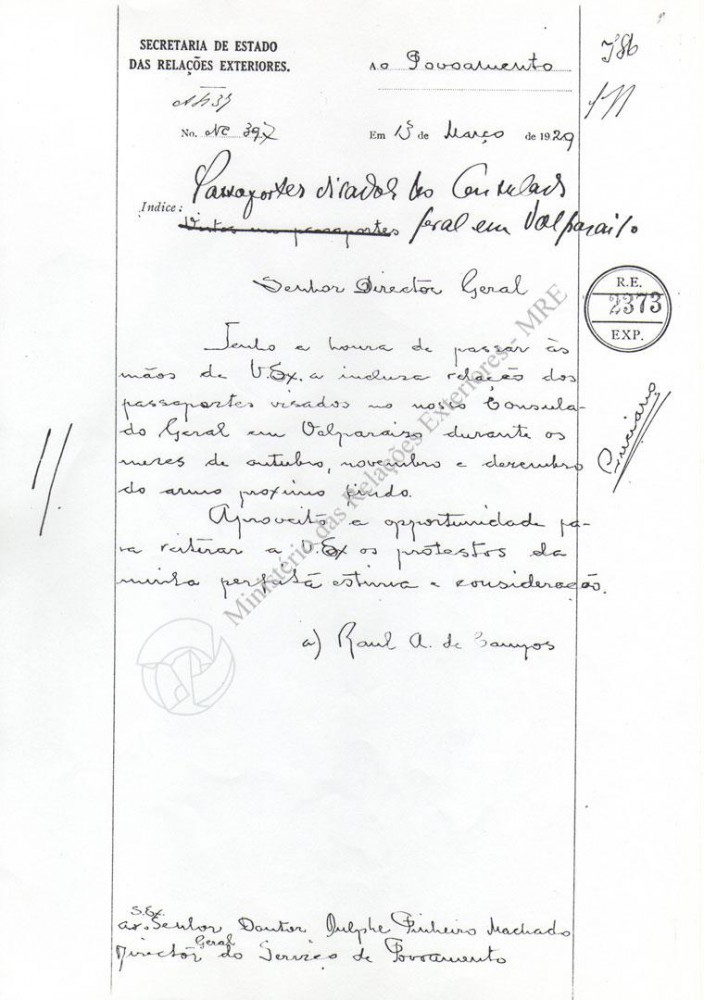 SECRETARIA DE ESTADO
DAS RELAÇÕES EXTERIORES.
Ao Povoamento
No. NC 397
Em 13 de Março de 1929
Indice: Passaportes visados no Consulado
Geral em Valparaiso
Senhor Director Geral
R.E.
2373
EXP.
Tenho a honra de passar às
mãos de V.Ex. a inclusa relação dos
passaportes visados no nosso Consula-
do Geral em Valparaiso durante os
mezes de outubro, novembro e dezembro
do anno proximo findo.
Aproveito a opportunidade pa-
ra reiterar a V.Ex os protestos da
minha perfeita estima e consideração.
a) Raul A. de Campos
Ministério das Relações Exteriores - MRE
S.Ex.
Senhor Doutor Dulphe Pinheiro Machado
Director Geral do Serviço de Povoamento